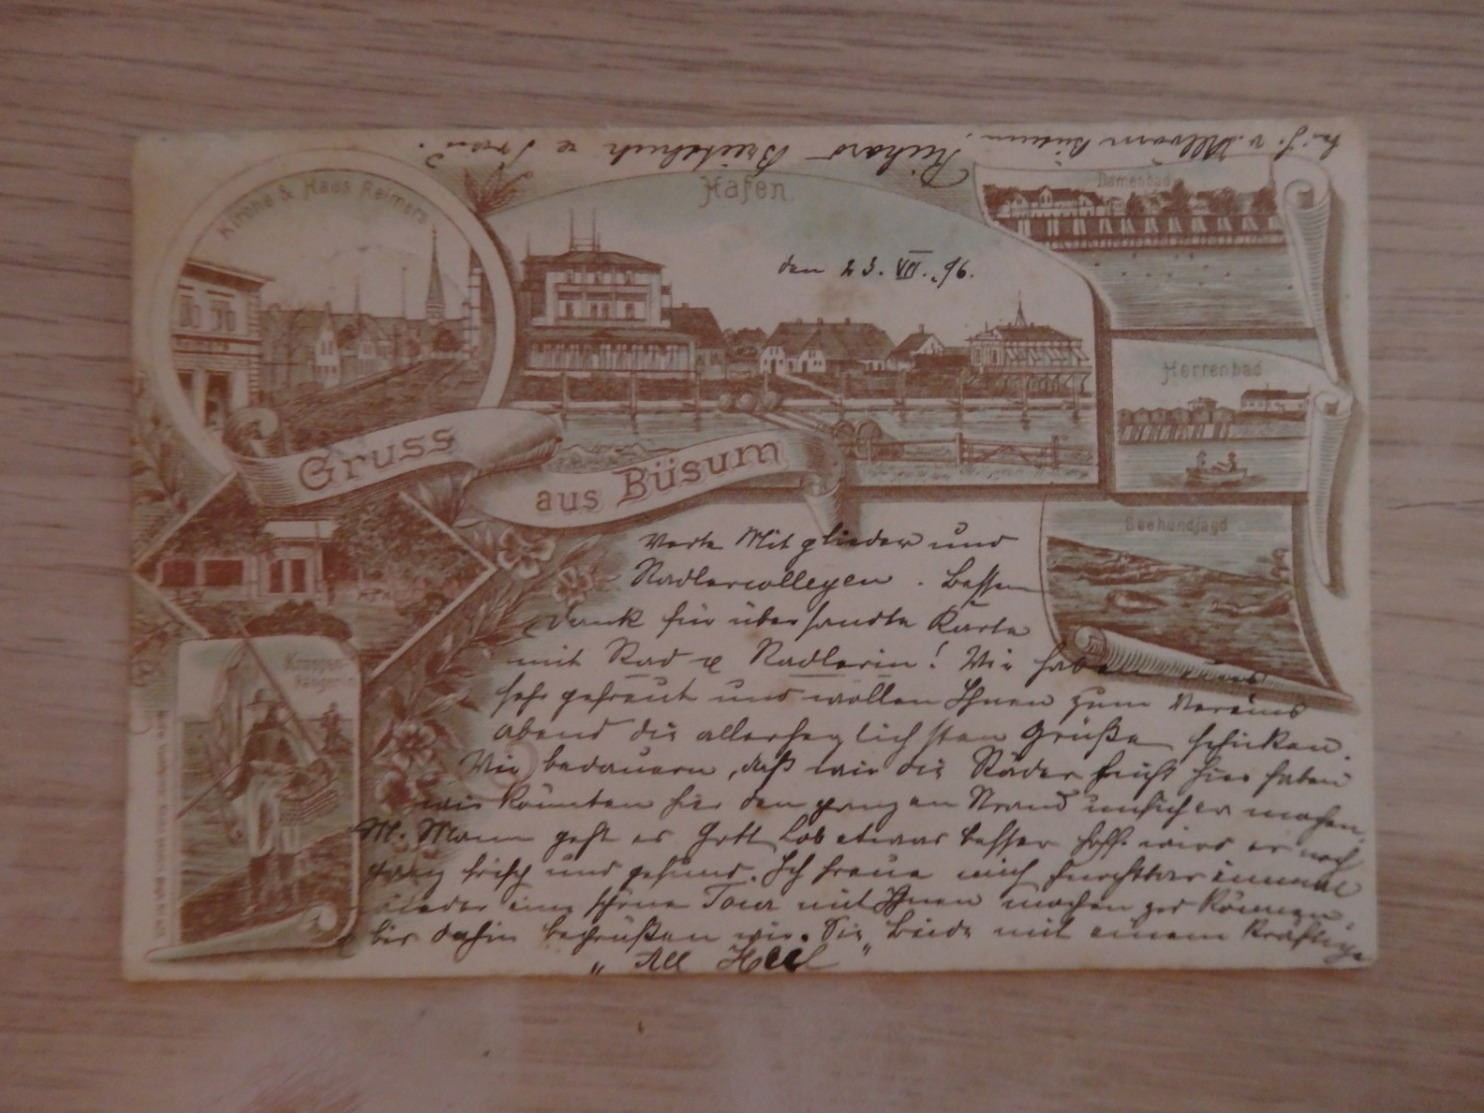 Kirche & Haus Reimers
Hafen.
Damenbad
den 23. VII. 96.
Herrenbad
Gruss
aus Büsum
Seehundjagd
Krabben-
fängerin
Werte Mitglieder und
Radlercollegen. Besten
Dank für übersandte Karte
mit Rad u Radlerin! Wir haben uns
sehr gefreut und wollen Ihnen zum Vereins
abend die allerherzlichsten Grüße schicken.
Wir bedauern, daß wir die Räder nicht hier haben
wir könnten hier den ganzen Strand unsicher machen
M. Mann geht es Gott Lob etwas besser hoff. wird er noch
ganz frisch und gesund. Ich freue mich furchtbar einmal
wieder eine schöne Tour mit Ihnen machen zu können,
bis dahin begrüßen wir Sie Beide mit einem kräftigen
„ All Heil "
Richard Breitebruh u Frau.